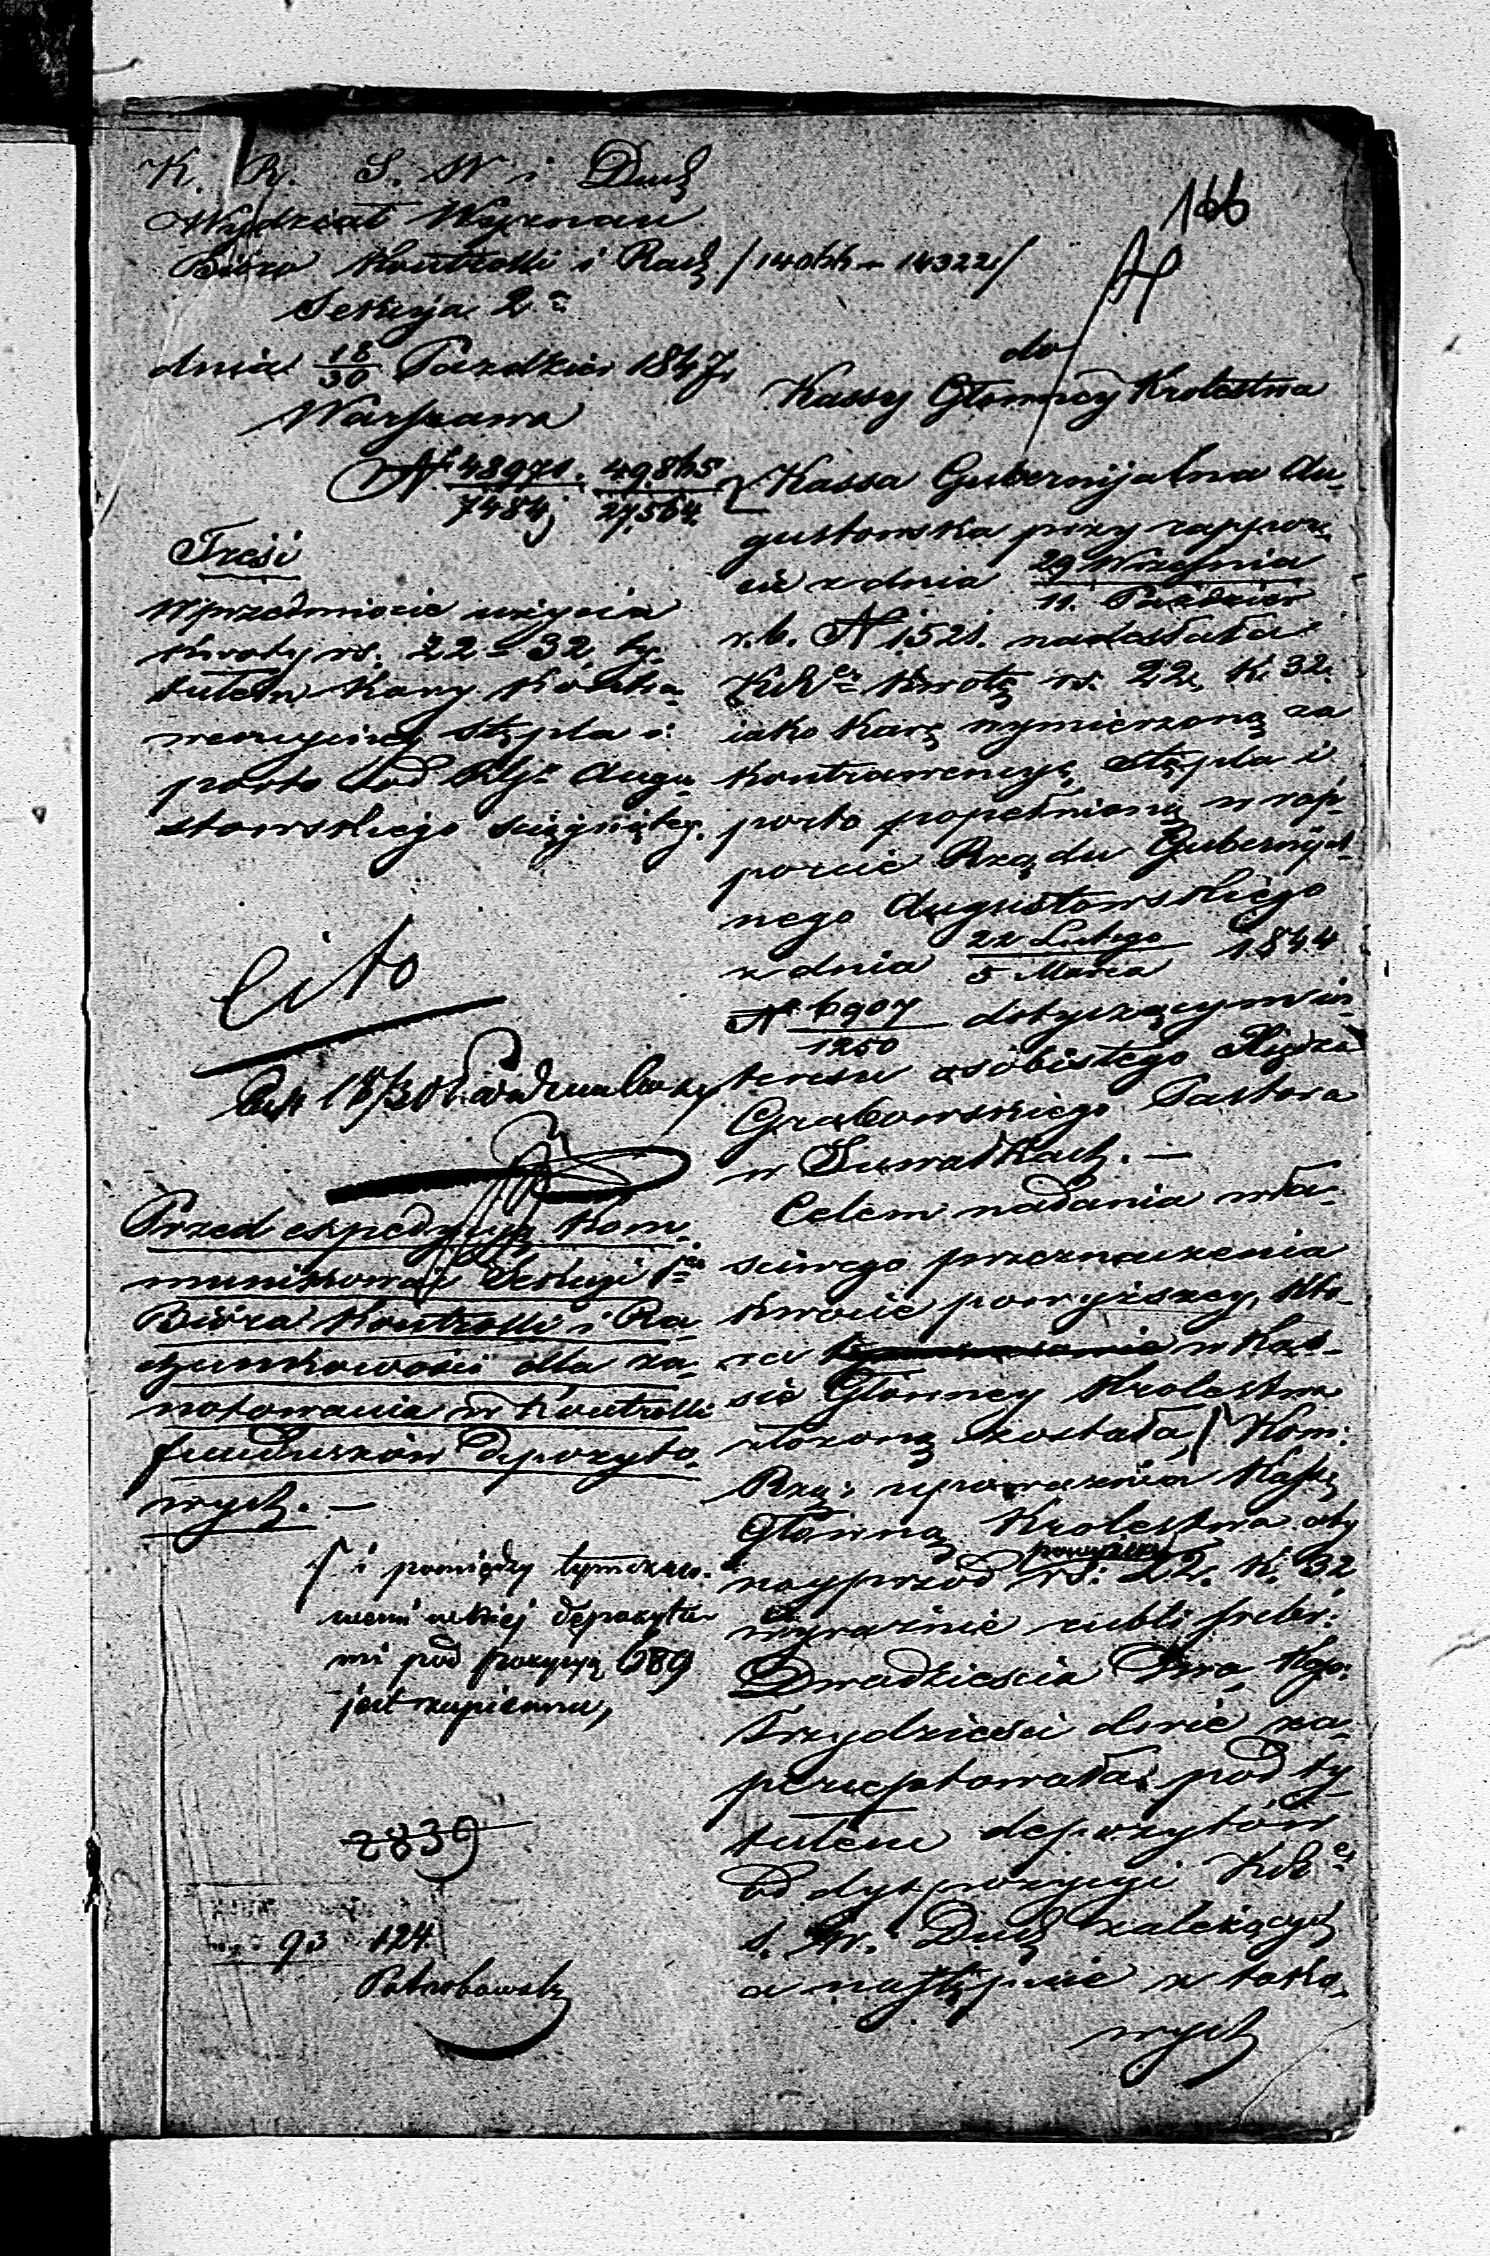 166
K. R. S. W i Duch
Wydział Wyznań
Biuro Kontrolli i Rach /14066 – 14322/
Sekcya 2a
dnia 18/30 Paździer 1847 r
Warszawa
No 48970/7484; 49,865/27,564.
Treść
W przedmiocie użycia
kwoty rs. 22 – 32, ty-
tułem kary kontra-
wencyinej stępla i
porto od Rządu Augu-
stowskiego ściągniętey.
Cito
Przed expedycyą kom-
munikować Sekcyi 1ej
Biura Kontrolli i Ra-
chunkowości dla za-
notowania w kontrolli
funduszów depozyto-
wych. –
/ i pomiędzy tymczaso-
wemi w tejże depozyta-
mi pod pozycyą 689
jest zapisana,
2839
93 124.
do
Kassy Głównéy Krolestwa
Kassa Gubernijalna Au-
gustowska przy rappor-
cie z dnia 29 Września/11. Paździer
r. b. No 1521. nadesłała
KRzej kwotę rs. 22, k. 32.
iako karę wymierzoną za
kontrawencyę stępla i
porto popełnioną w rap-
porcie Rządu Gubernijal-
nego Augustowskiego
z dnia 22 Lutego/5 Marca 1844
No 6907/1250 dotyczącym in-
teresu osobistego Xiędza
Grabowskiego Pastora
w Suwałkach. –
Celem nadania wła-
ściwego przeznaczenia
kwocie powyższey, któ-
ra w Kas-
sie Głównéy Krolestwa
złożoną została, / Kom:
Rzą: upoważnia Kassę
Główną Krolestwa aby
nayprzód powyższe rs: 22. k. 32
wyraźnie rubli srebr:
Dwadzieścia Dwa kop:
Trzydzieści dwie za-
perceptowała pod ty-
tułem depozytów
od dyspozycyi KRej
S. W. Duch zależących
a następnie z tako-
wych